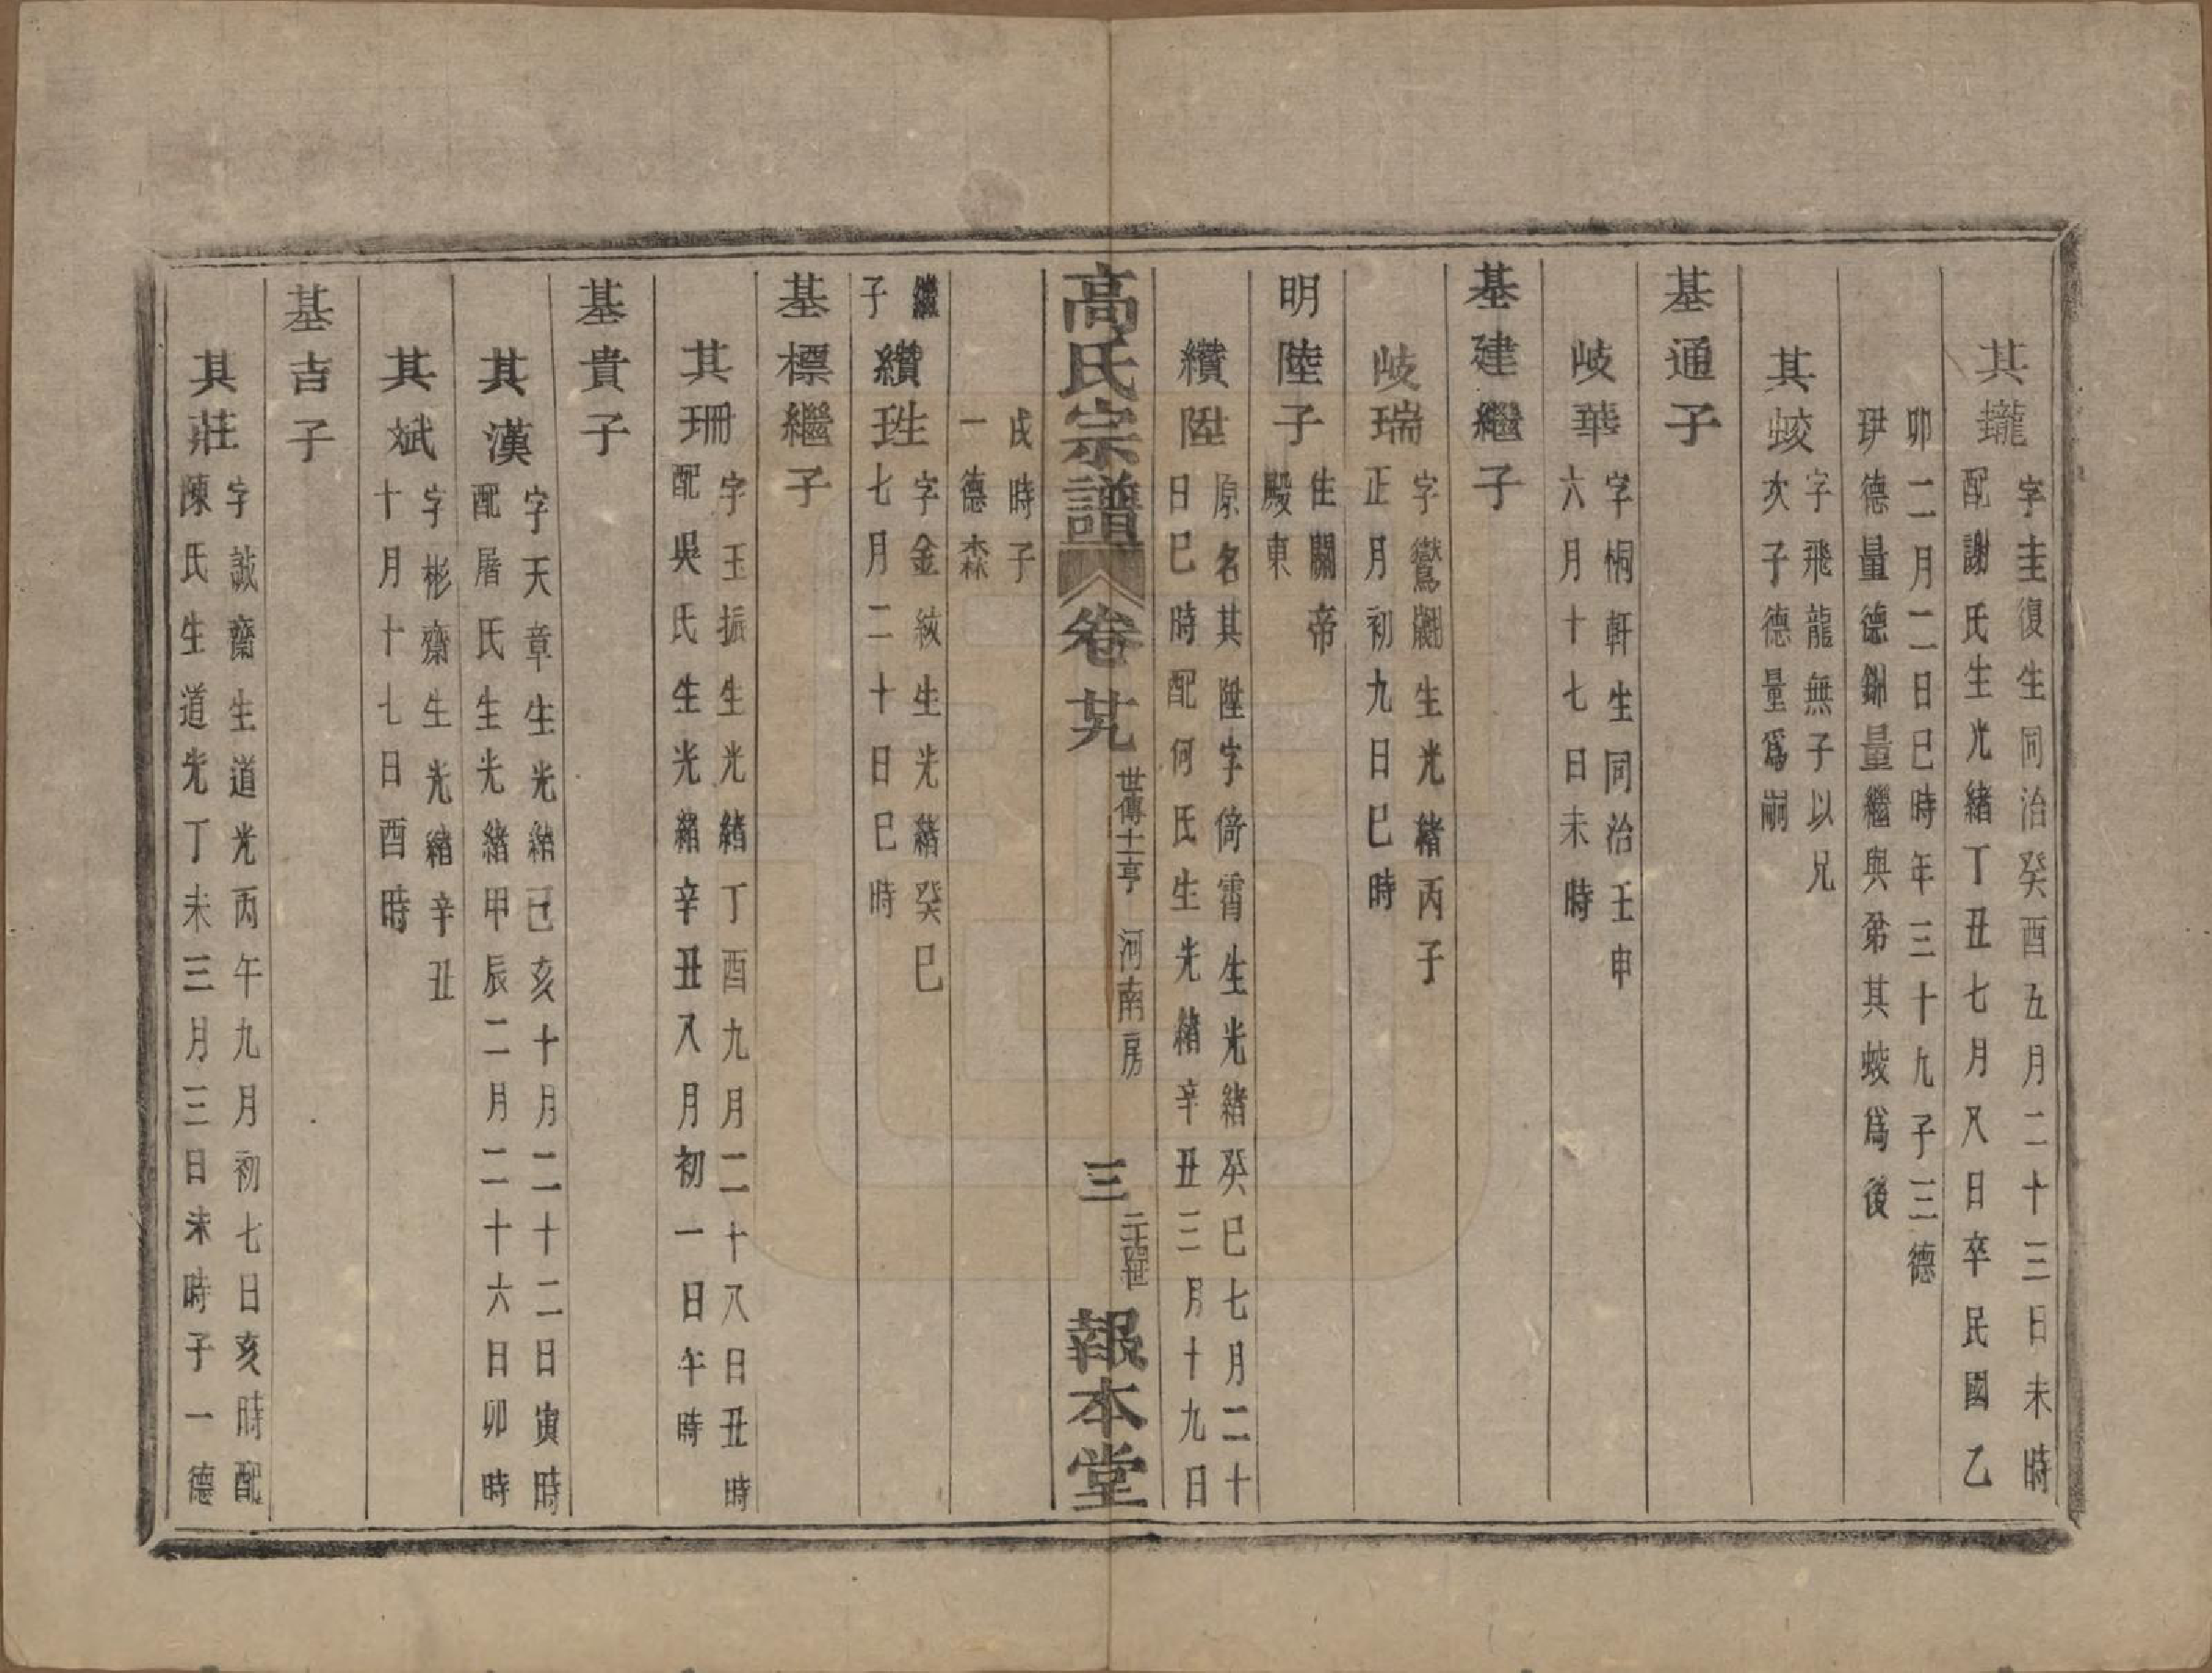 其𤫩
字圭復生同治癸酉五月二十三日未時
配謝氏生光緒丁丑七月又日卒民國乙
卯二月二日巳時年三十九子三德
伊德量德錦量繼與弟其蛟爲後
其蛟
字飛龍無子以兄
次子德量爲嗣
基通子
岐華
字桐軒生同治壬申
六月十七日未時
基建繼子
岐瑞
字鸑翽生光緒丙子
正月初九日巳時
明陸子
住關帝
殿東
纘陞
原名其陞字倚霄生光緒癸巳七月二十
日巳時配何氏生光緒辛丑三月十九日
高氏宗譜 卷廿九 世傳十二亨 河南房 三 二十四世 報本堂
戌時子
一德森
繼子
纘珄
字金紋生光緒癸巳
七月二十日巳時
基標繼子
其珊
字玉振生光緒丁酉九月二十八日丑時
配吳氏生光緒辛丑又月初一日午時
基貴子
其漢
字天章生光緒己亥十月二十二日寅時
配屠氏生光緒甲辰二月二十六日卯時
其斌
字彬齋生光緒辛丑
十月十七日酉時
基吉子
其莊
字誠齋生道光丙午九月初七日亥時配
陳氏生道光丁未三月三日未時子一德